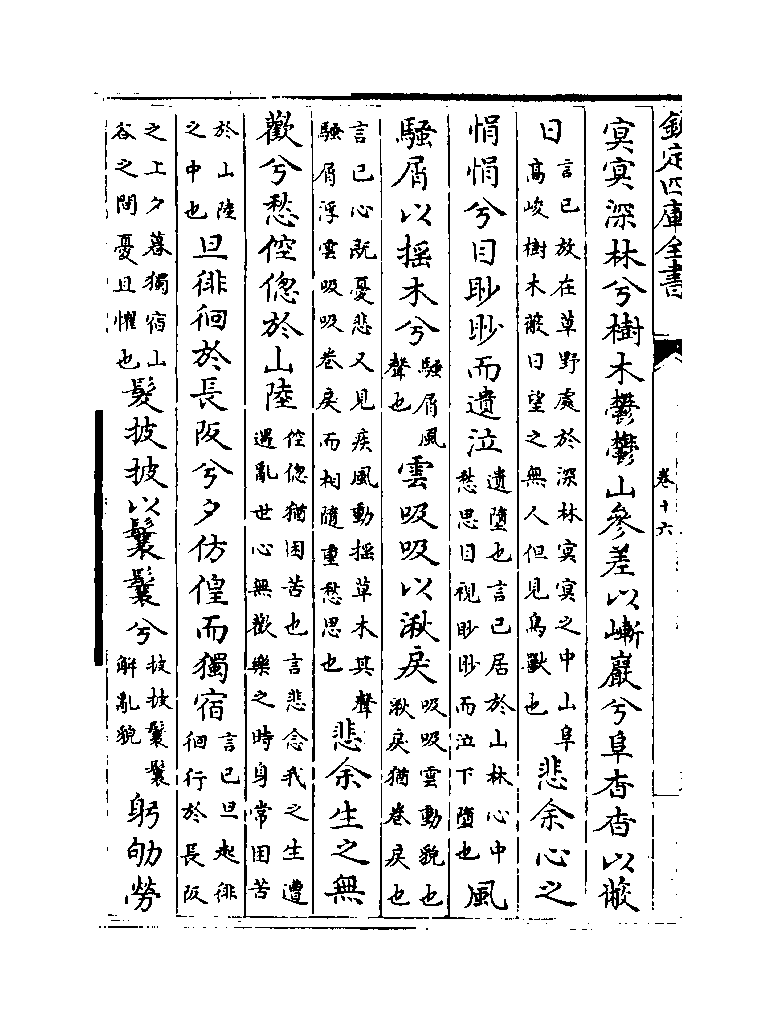 欽定四庫全書
卷十六
冥冥深林兮樹木鬱鬱山參差以嶃巖兮阜杳杳以蔽
日言已放在草野處於深林冥冥之中山阜高峻樹木蔽日望之無人但見鳥獸也悲余心之
悁悁兮目眇眇而遺泣遺墮也言已居於山林心中愁思目視眇眇而泣下墮也風
騷屑以揺木兮騷屑風聲也雲吸吸以湫戾吸吸雲動貌也湫戾猶卷戾也
言已心既憂悲又見疾風動揺草木其聲騷屑浮雲吸吸卷戾而相隨重愁思也悲余生之無
歡兮愁倥偬於山陸倥偬猶困苦也言悲念我之生遭遇亂世心無歡樂之時身常困苦
於山陸之中也旦徘徊於長阪兮夕彷徨而獨宿言已旦起徘徊行於長阪
之上夕暮獨宿山谷之間憂且懼也髮披披以鬤鬤兮披披鬤鬤解亂貌躬劬勞